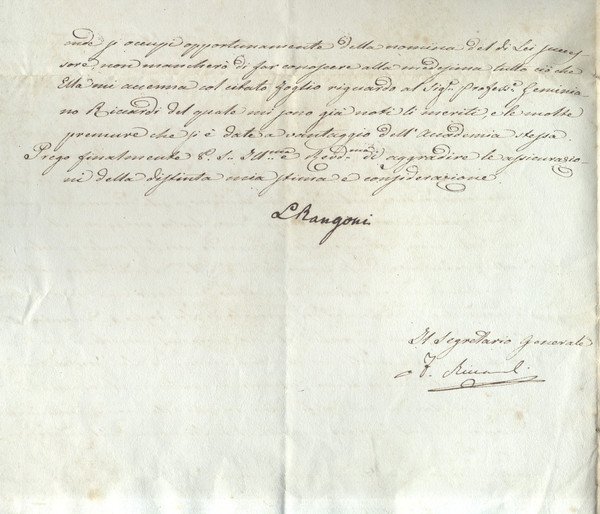 onde si occupi opportunamente della nomina del di Lei succes
sore, non mancherò di far conoscere alla medesima tutto ciò che
Ella mi accenna col citato foglio riguardo al Sigr. Profess.r Geminia
no Riccardi del quale mi sono già noti li meriti, e le molte
premure che si è date a vantaggio dell'Accademia stessa.
Prego finalmente V. S. Ill.ma e Rev.ma di aggradire le assicurazio
ni della distinta mia stima e considerazione.
LRangoni
Il Segretario Generale